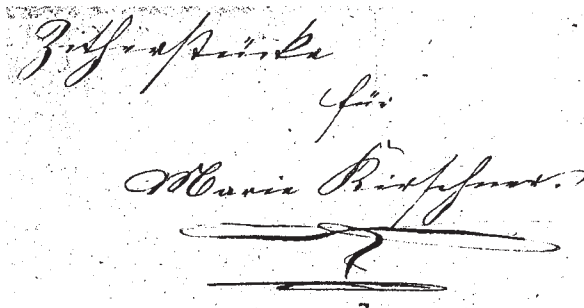 Zitherstücke
für
Marie Kirschner.